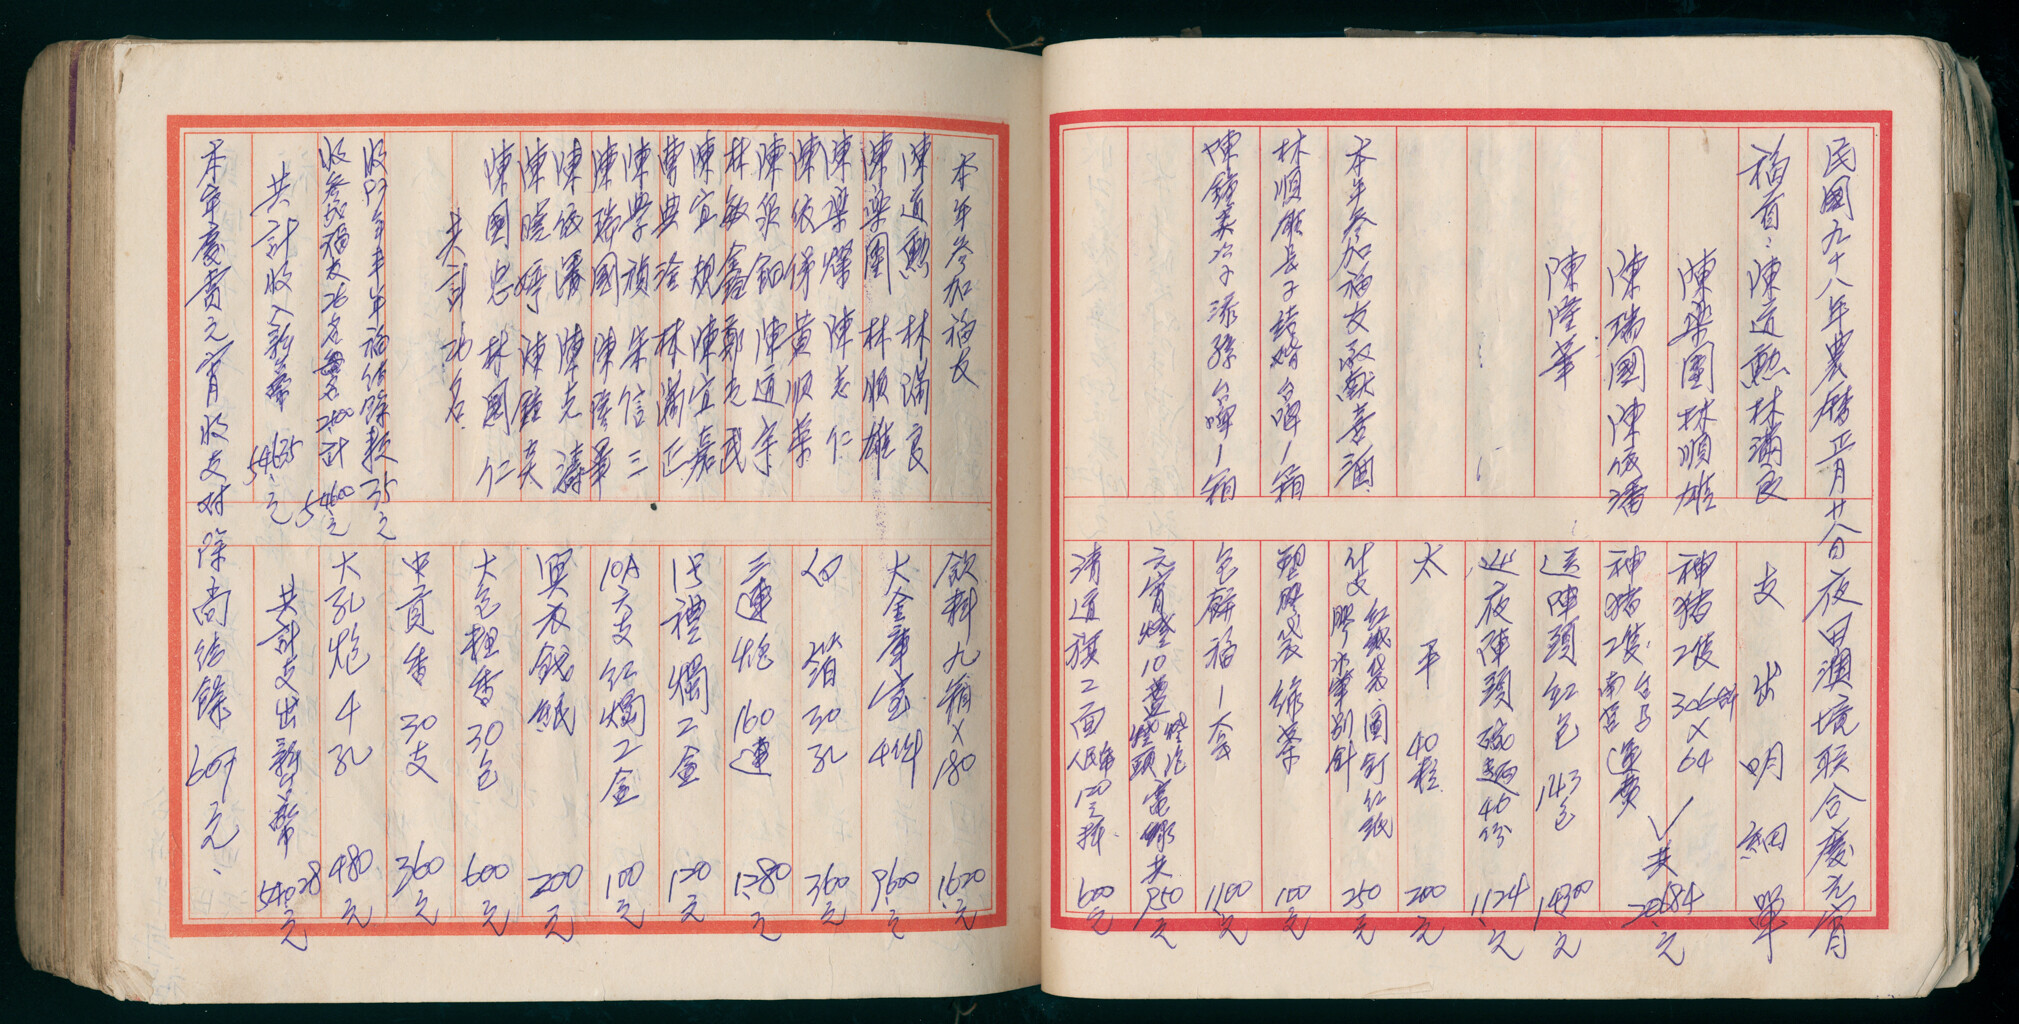 民國九十八年農曆正月廿八日夜田澳境联合慶元宵
福首：陳道勲 林滿良
陳梁團 林順雄
陳瑞國 陳依潘
陳陸華
本年参加福友敬献喜酒
林順雄長子结婚台啤1箱
陳鐘英次子添孫台啤1箱
支出明細單
神猪2隻 306斤×64
神猪2隻 台马 南宫 運費 共20,684元
送陣頭红包143包 14300元
巡夜陣頭 46份 1,124元
太平 40粒 200元
什支 红紙袋 圖釘 红紙 膠水筆别針 250元
塑膠袋 綠茶 100元
包餅福1合 1100元
元宵燈10盞 燈泡 燈頭 電線 共950元
清道旗2面 人民幣120元 600元
本年参加福友
陳道勲 林滿良
陳梁團 林順雄
陳梁燦 陳志仁
陳依俤 黄順華
陳泉鈿 陳道宇
林敏鑫 鄭光武
陳宜規 陳宜嘉
曹典淦 林滿正
陳學禎 朱信三
陳瑞國 陳陸華
陳依潘 陳克濤
陳曉婷 陳鐘英
陳國忠 林國仁
共計26名
收97年半年福結餘款35元
收参加福友26名每名2100計54600元
共計收入新台幣 54635元
本年慶賀元宵收支对除尚结餘607元
飲料九箱×180 1,620元
大金庫宝4件 9,600元
30孔 360元
三連炮160連 1,280元
1号禮燭2盒 120元
10A六支红燭2盒 100元
冥衣錢紙 200元
大包粗香30包 600元
中貢香30支 360元
大孔炮4孔 480元
共計支出新台幣 54028元